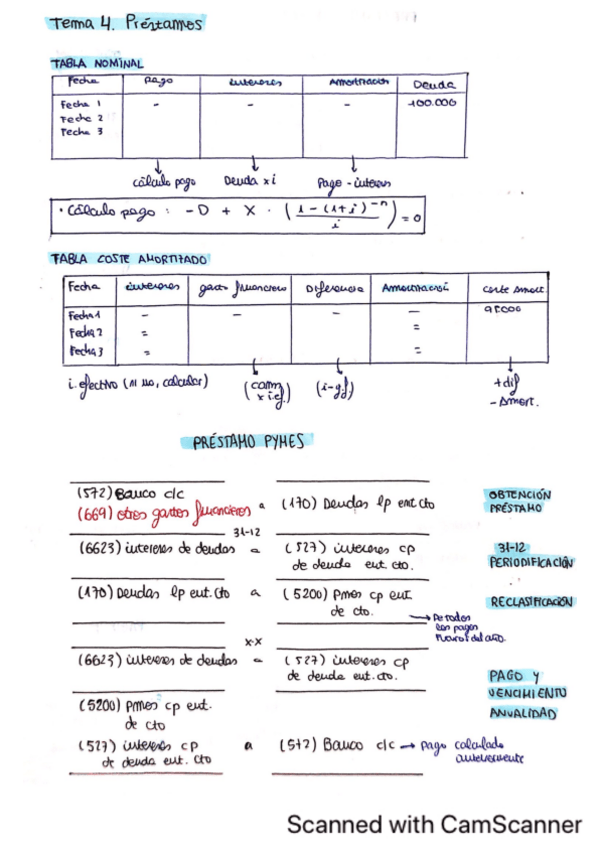 Tema 4. Préstamos
TABLA NOMINAL
Fecha pago intereses Amortización Deuda
Fecha 1 - - - 100.000
Fecha 2
Fecha 3
cálculo pago Deuda x i Pago - interes
· Cálculo pago : -D + X · (1 - (1+i)^-n / i) = 0
TABLA COSTE AMORTIZADO
Fecha intereses gasto financiero Diferencia Amortización coste Amort.
Fecha 1 - - - - 95000
Fecha 2 = =
Fecha 3 = =
i. efectivo (si no, calcular) (i-gf) +dif
- Amort.
PRÉSTAMO PYMES
(572) Banco c/c
(669) otros gastos financieros a (170) Deudas lp ent cto
OBTENCIÓN
PRÉSTAMO
31-12
(6623) intereses de deudas a (527) intereses cp
de deuda ent. cto.
31-12
PERIODIFICACIÓN
(170) Deudas lp ent. cto a (5200) Pmos cp ent
de cto.
RECLASIFICACIÓN
De todos
los pagos
del año.
x-x
(6623) intereses de deudas a (527) intereses cp
de deuda ent. cto.
PAGO Y
VENCIMIENTO
ANUALIDAD
(5200) Pmos cp ent.
de cto
(527) intereses cp a (572) Banco c/c → pago calculado
de deuda ent. cto anteriormente
Scanned with CamScanner